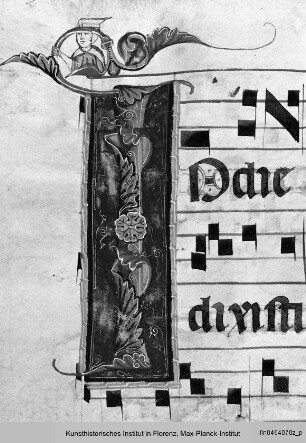 IN
odie
dixisti
Kunsthistorisches Institut in Florenz, Max-Planck-Institut
fln0464070z_p